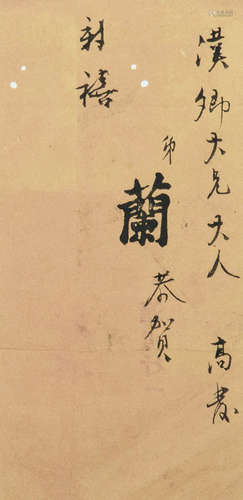 漢卿大兄大人 高
弟 蘭 恭賀
新禧